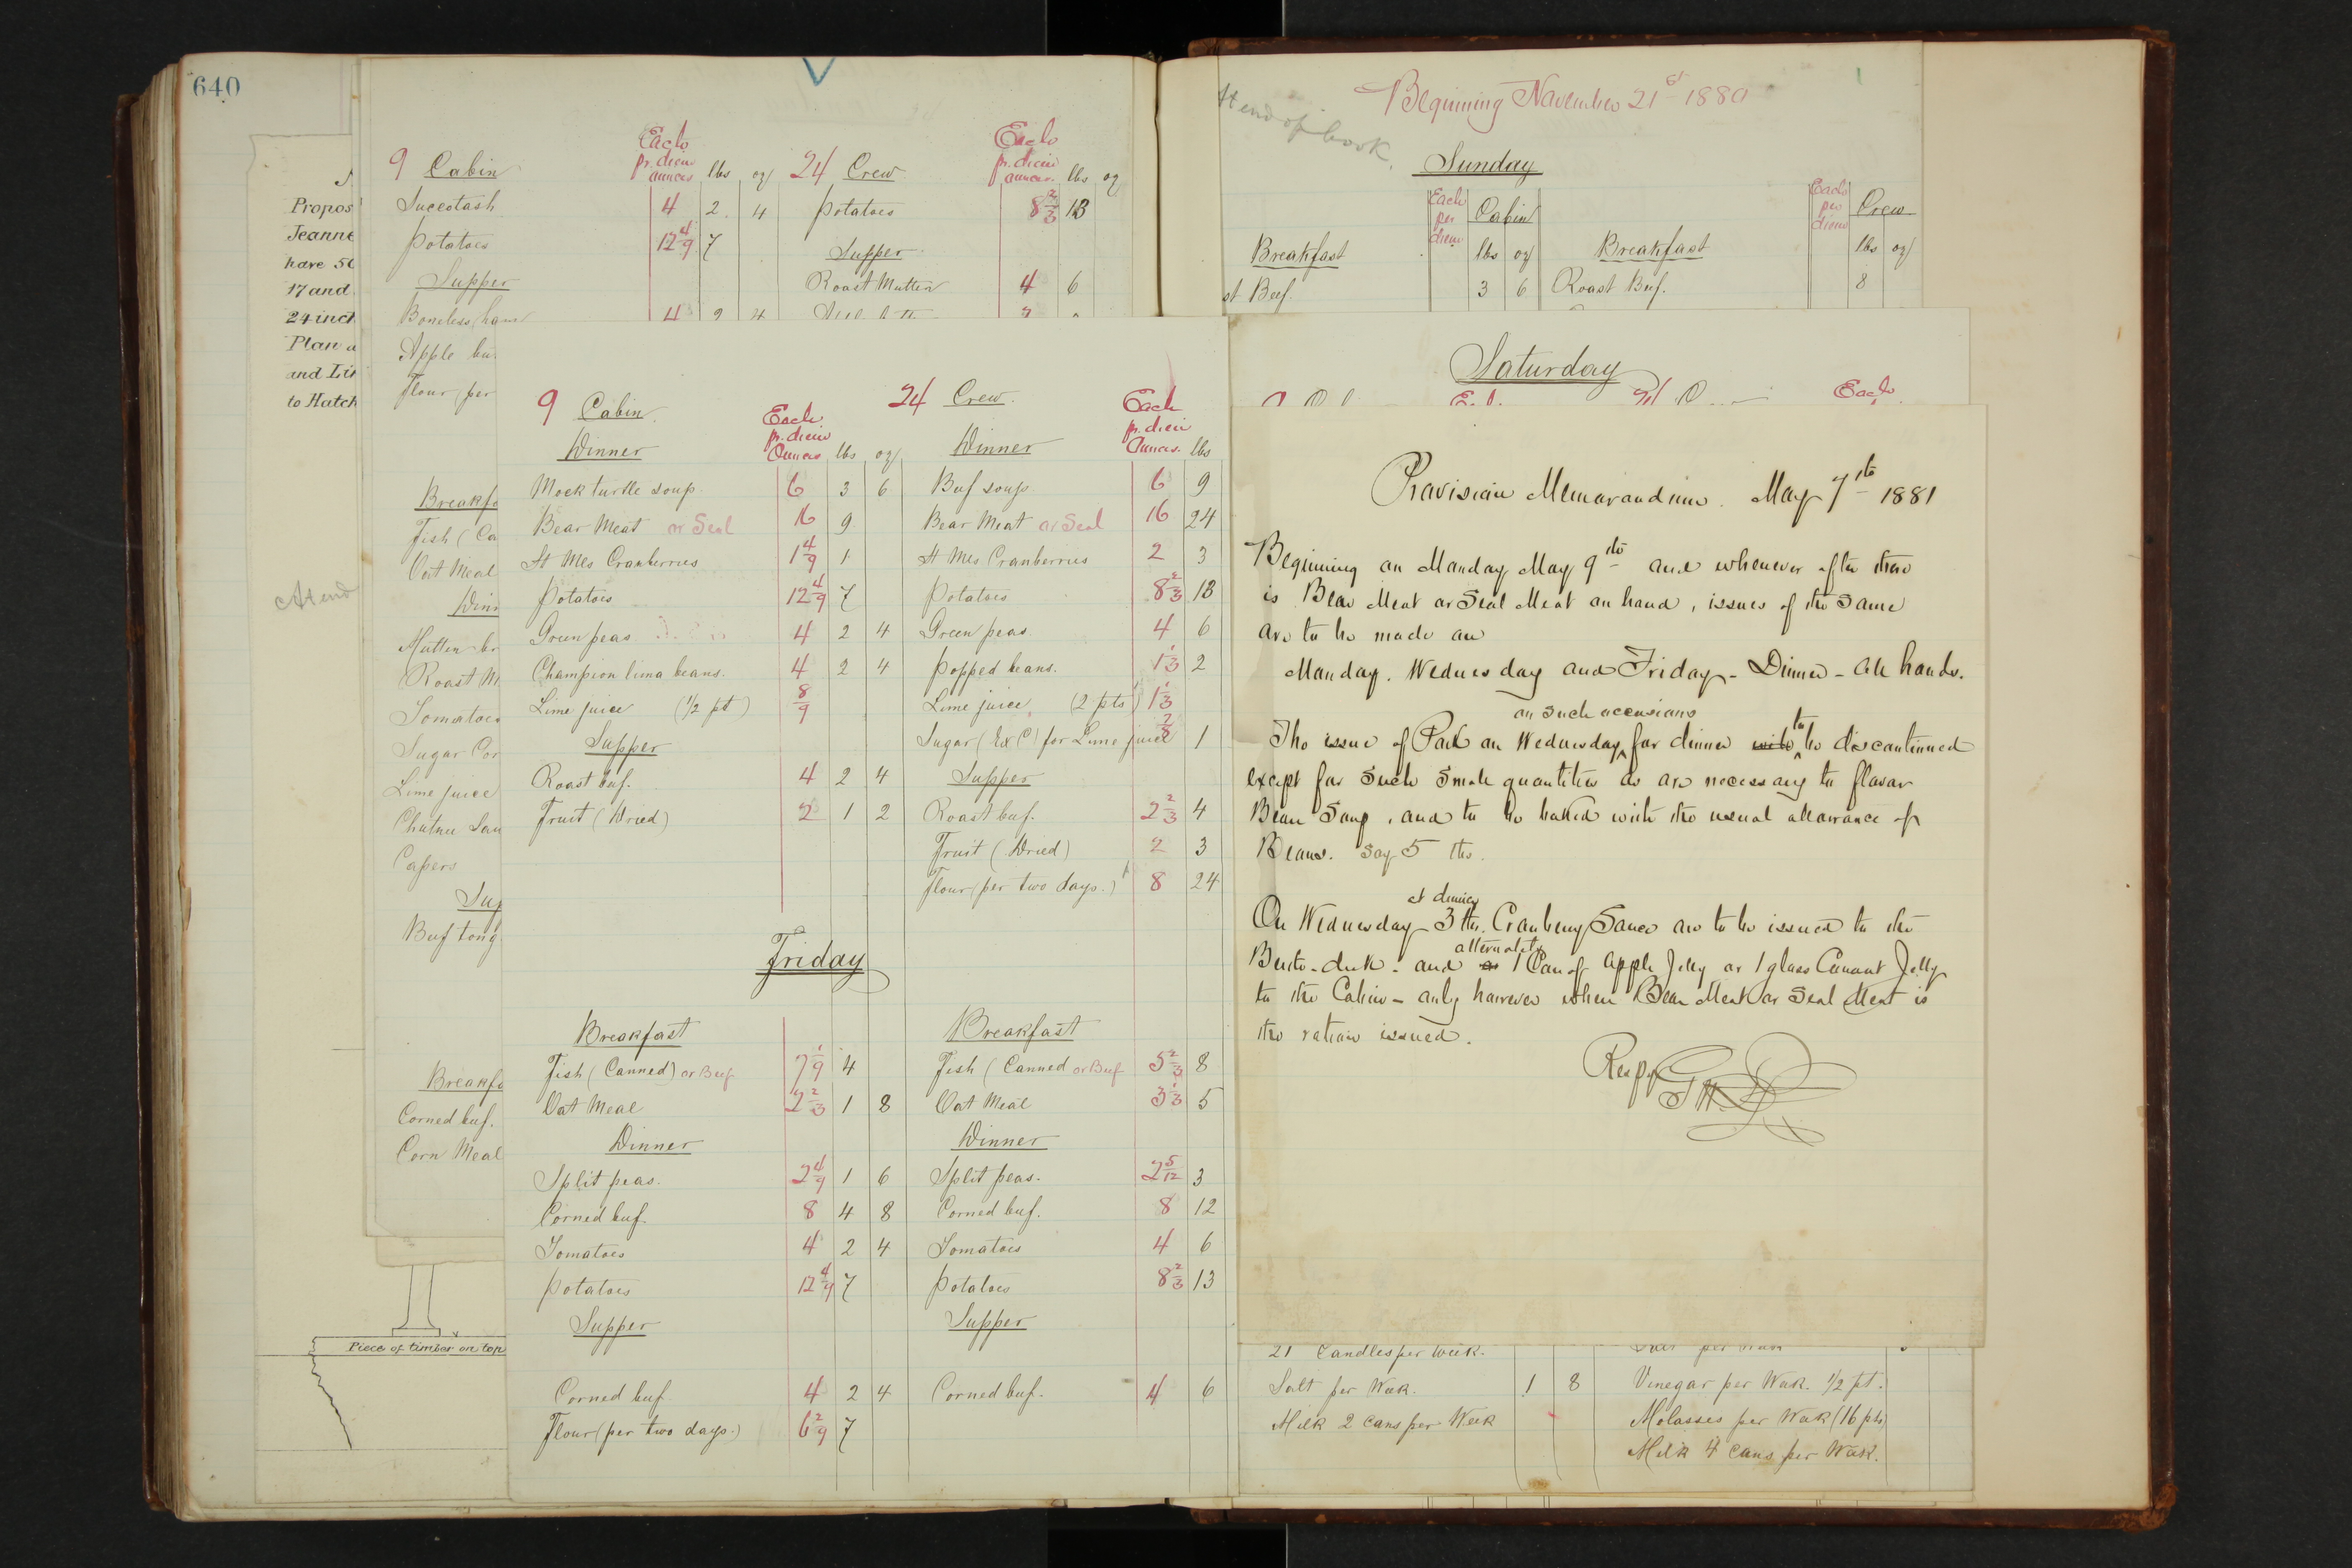 640
Propos
Jeanne
have 50
17 and
24 inch
Plan a
and Lin
to Hatch
Attend
Piece of timber on top
9 Cabin Each pr. diem ounces lbs oz 24 Crew Each pr. diem ounces lbs oz
Succotash 4 2 4 Potatoes 8 2/3 13
Potatoes 12 4/9 7 Supper
Supper Roast Mutton 4 6
Boneless ham 4 2 4
Apple bu
Flour (per
Breakfa
Fish (Ca
Oat Meal
Dinn
Mutton br
Roast M
Tomatoes
Sugar Cor
Lime juice
Chutnee Sau
Capers
Sup
Beef tong
Breakfa
Corned beef.
Corn Meal
9 Cabin Each pr. diem Ounces lbs oz 24 Crew. Each pr. diem Ounces. lbs
Dinner Dinner
Mock turtle soup 6 3 6 Beef soup 6 9
Bear Meat or Seal 16 9 Bear Meat or Seal 16 24
At Mls Cranberries 1 4/9 1 At Mls Cranberries 2 3
Potatoes 12 4/9 7 Potatoes 8 2/3 13
Green peas 4 2 4 Green peas. 4 6
Champion lima beans. 4 2 4 Popped beans. 1 1/3 2
Lime juice (1/2 pt) 8/9 Lime juice. (2 pts) 1 1/3
Supper Sugar (Ex C) for Lime juice 2/3 1
Roast beef. 4 2 4 Supper
Fruit (Dried) 2 1 2 Roast beef. 2 2/3 4
Fruit (Dried) 2 3
Flour (per two days.) 8 24
Friday
Breakfast Breakfast
Fish (Canned) or Beef 7 1/9 4 Fish (Canned or Beef 5 2/3 8
Oat Meal 2 2/3 1 8 Oat Meal 3 1/3 5
Dinner Dinner
Split peas. 2 4/9 1 6 Split peas. 2 5/12 3
Corned beef. 8 4 8 Corned beef. 8 12
Tomatoes 4 2 4 Tomatoes 4 6
Potatoes 12 4/9 7 Potatoes 8 2/3 13
Supper Supper
Corned beef 4 2 4 Corned beef. 4 6
Flour (per two days.) 6 2/9 7
At end of book.
Beginning November 21st 1880
Sunday
Each per diem Cabin Each per diem Crew
Breakfast lbs oz Breakfast lbs oz
st Beef. 3 6 Roast Beef. 8
Saturday
Each
Provision Memorandum. May 7th 1881
Beginning on Monday May 9th and whenever after there
is Bear Meat or Seal Meat on hand, issues of the same
are to be made on
Monday. Wednesday and Friday - Dinner - all hands.
on such occasions
The issue of Pork on Wednesday for dinner will to be discontinued
except for such small quantities as are necessary to flavor
Bean Soup, and to be baked with the usual allowance of
Beans. Say 5 lbs.
at dinner
On Wednesday 3 lbs. Cranberry Sauce are to be issued to the
alternately
Berth-deck - and or 1 Can of Apple Jelly or 1 glass Currant Jelly
to the Cabin - only however when Bear Meat or Seal Meat is
the ration issued.
Respy
21 Candles per week. Salt per week
Salt per Week. 1 8 Vinegar per Week. 1/2 pt.
Milk 2 cans per Week Molasses per Week (16 pts)
Milk 4 Cans per Week.